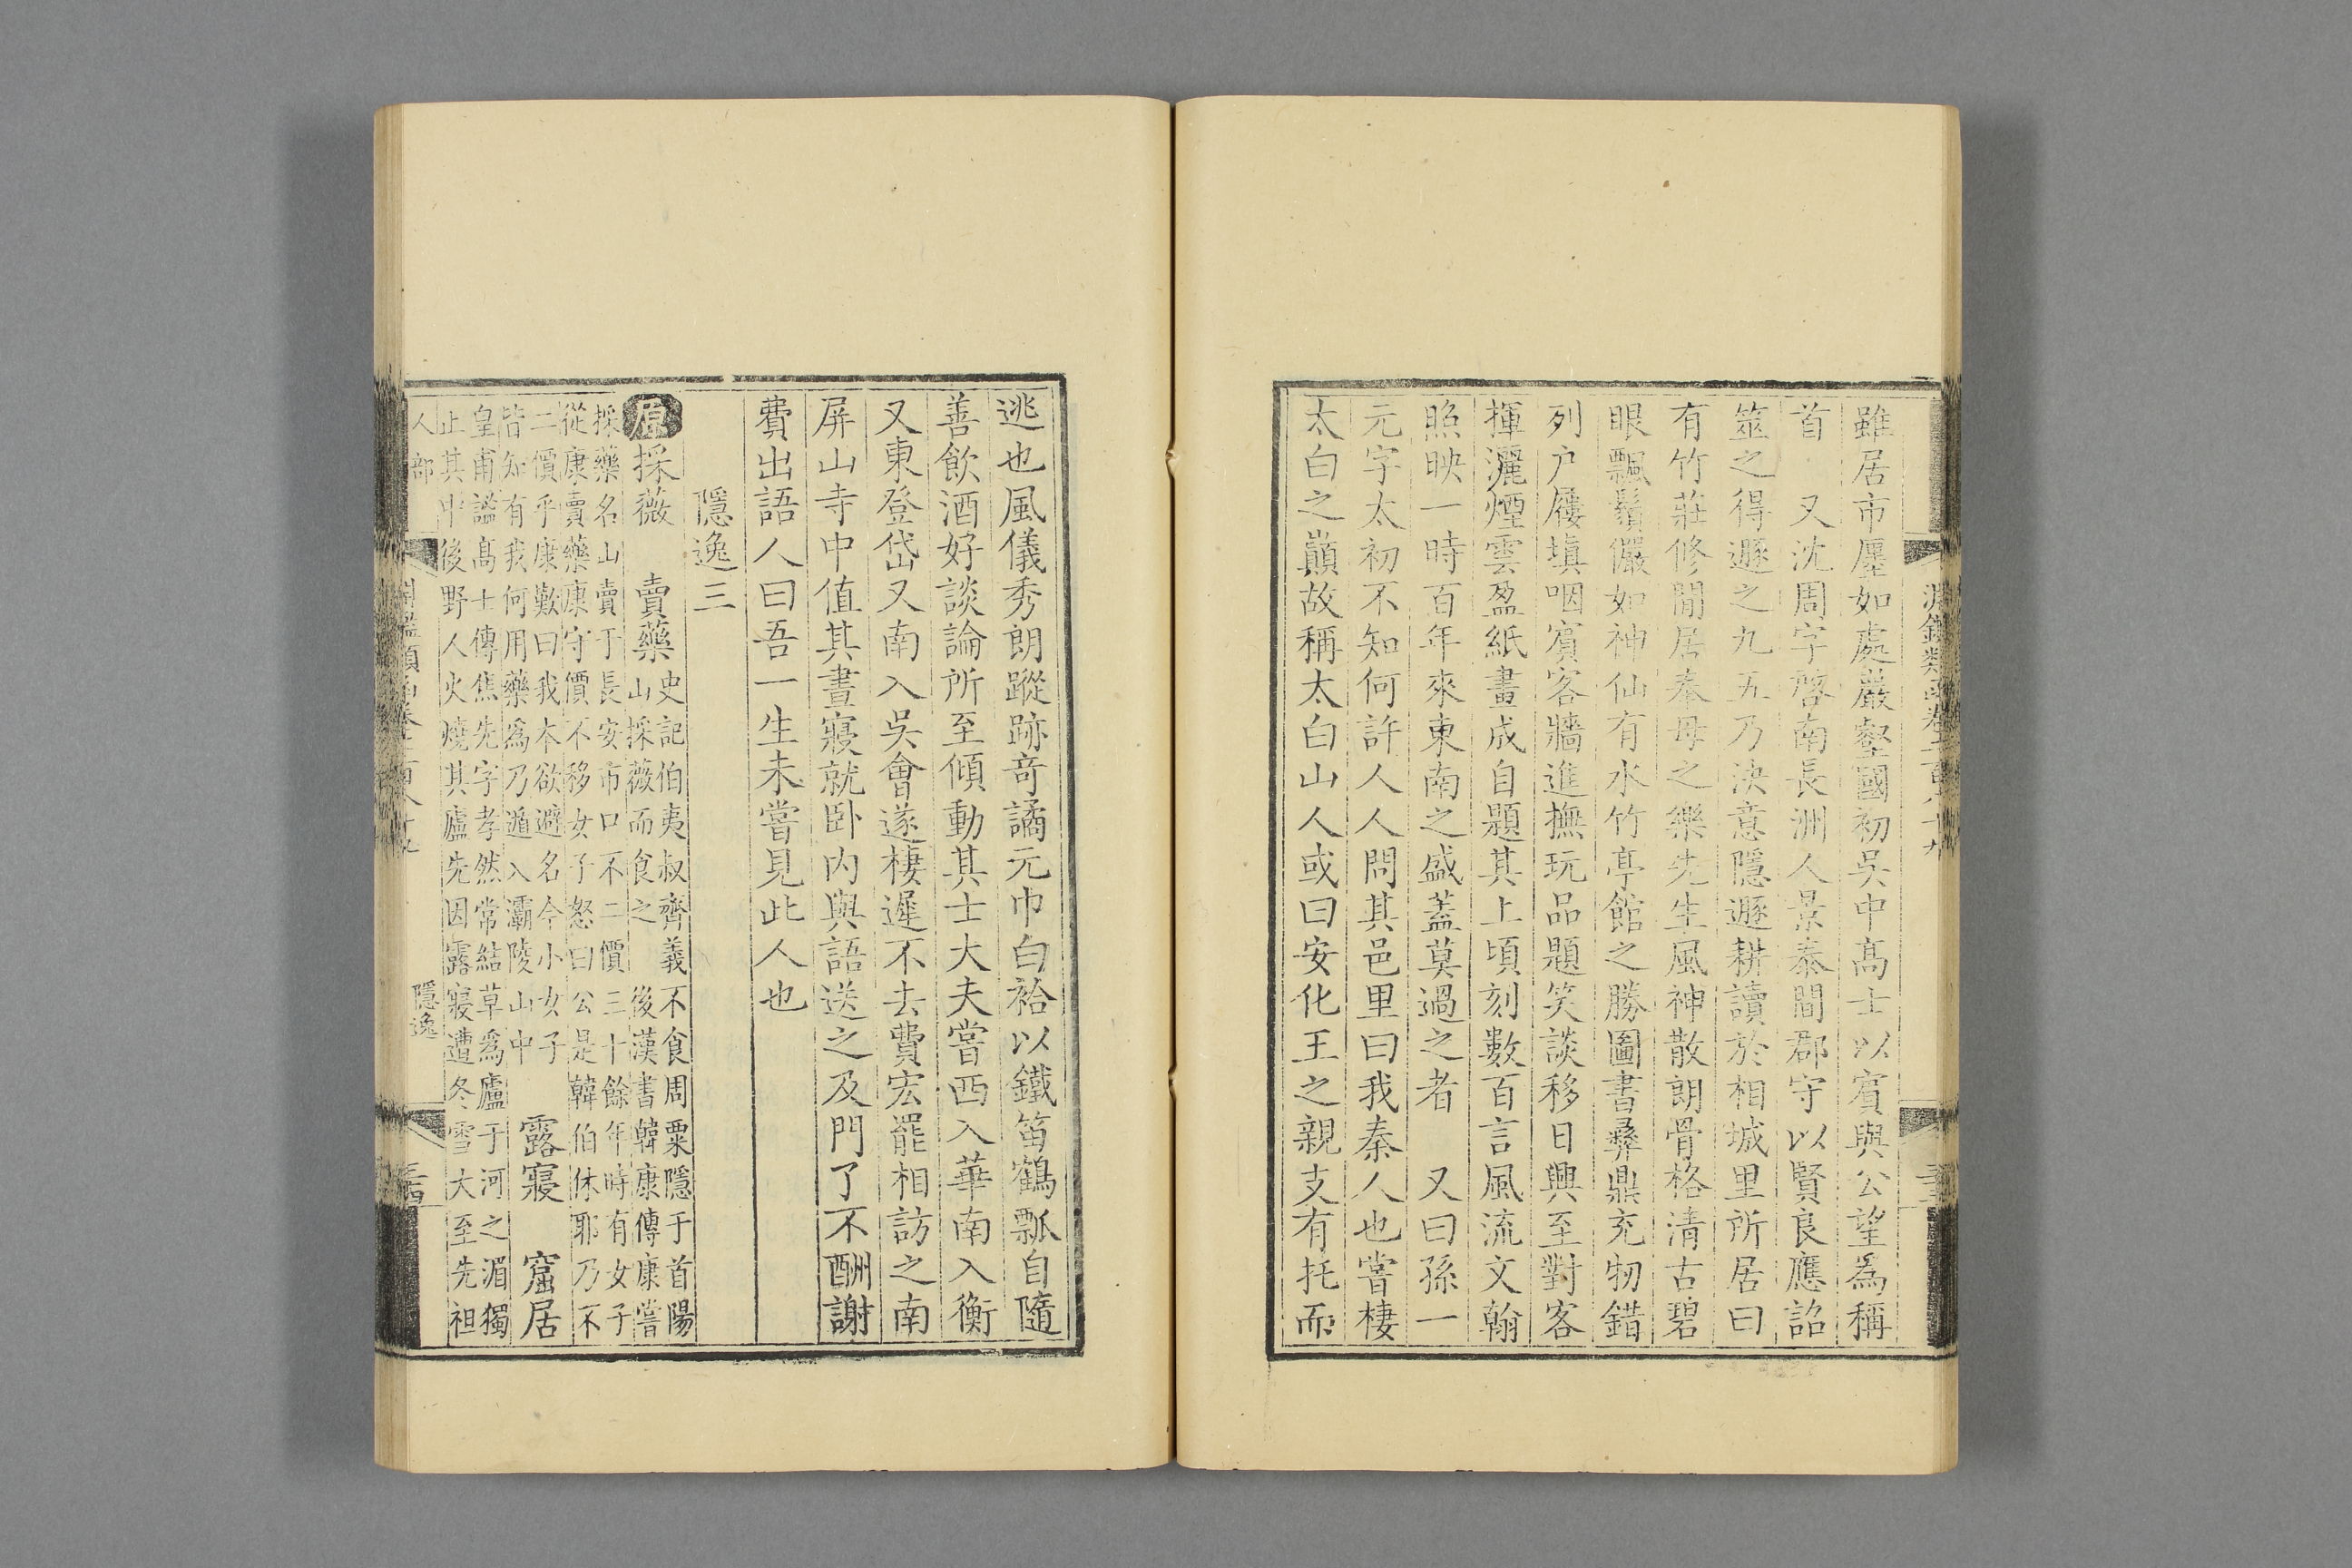 雖居市廛如處巖壑國初吳中髙士以賔與公望為稱
首　又沈周字啓南長洲人景泰間郡守以賢良應詔
筮之得遯之九五乃決意隱遯耕讀於相城里所居曰
有竹莊修閒居奉母之樂先生風神散朗骨格清古碧
眼飄鬚儼如神仙有水竹亭館之勝圖書彞鼎充牣錯
列户屨塡咽賔客牆進撫玩品題笑談移日興至對客
揮灑煙雲盈紙畫成自題其上頃刻數百言風流文翰
照映一時百年來東南之盛蓋莫過之者　又曰孫一
元字太初不知何許人人問其邑里曰我秦人也嘗棲
太白之巔故稱太白山人或曰安化王之親支有托而
逃也風儀秀朗蹤跡竒譎元巾白袷以鐵笛鶴瓢自隨
善飲酒好談論所至傾動其士大夫嘗西入華南入衡
又東登岱又南入吳會遂棲遲不去費宏罷相訪之南
屏山寺中值其晝寢就卧内與語送之及門了不酬謝
費出語人曰吾一生未嘗見此人也
隱逸三
原採薇　賣藥
史記伯夷叔齊義不食周粟隱于首陽
山採薇而食之　後漢書韓康傳康嘗
採藥名山賣于長安市口不二價三十餘年時有女子
從康賣藥康守價不移女子怒曰公是韓伯休耶乃不
二價乎康歎曰我本欲避名今小女子
皆知有我何用藥為乃遁入灞陵山中
露寢　窟居
皇甫謐髙士傳焦先字孝然常結草爲廬于河之湄獨
止其中後野人火燒其廬先因露寢遭冬雪大至先袒
人部
隱逸